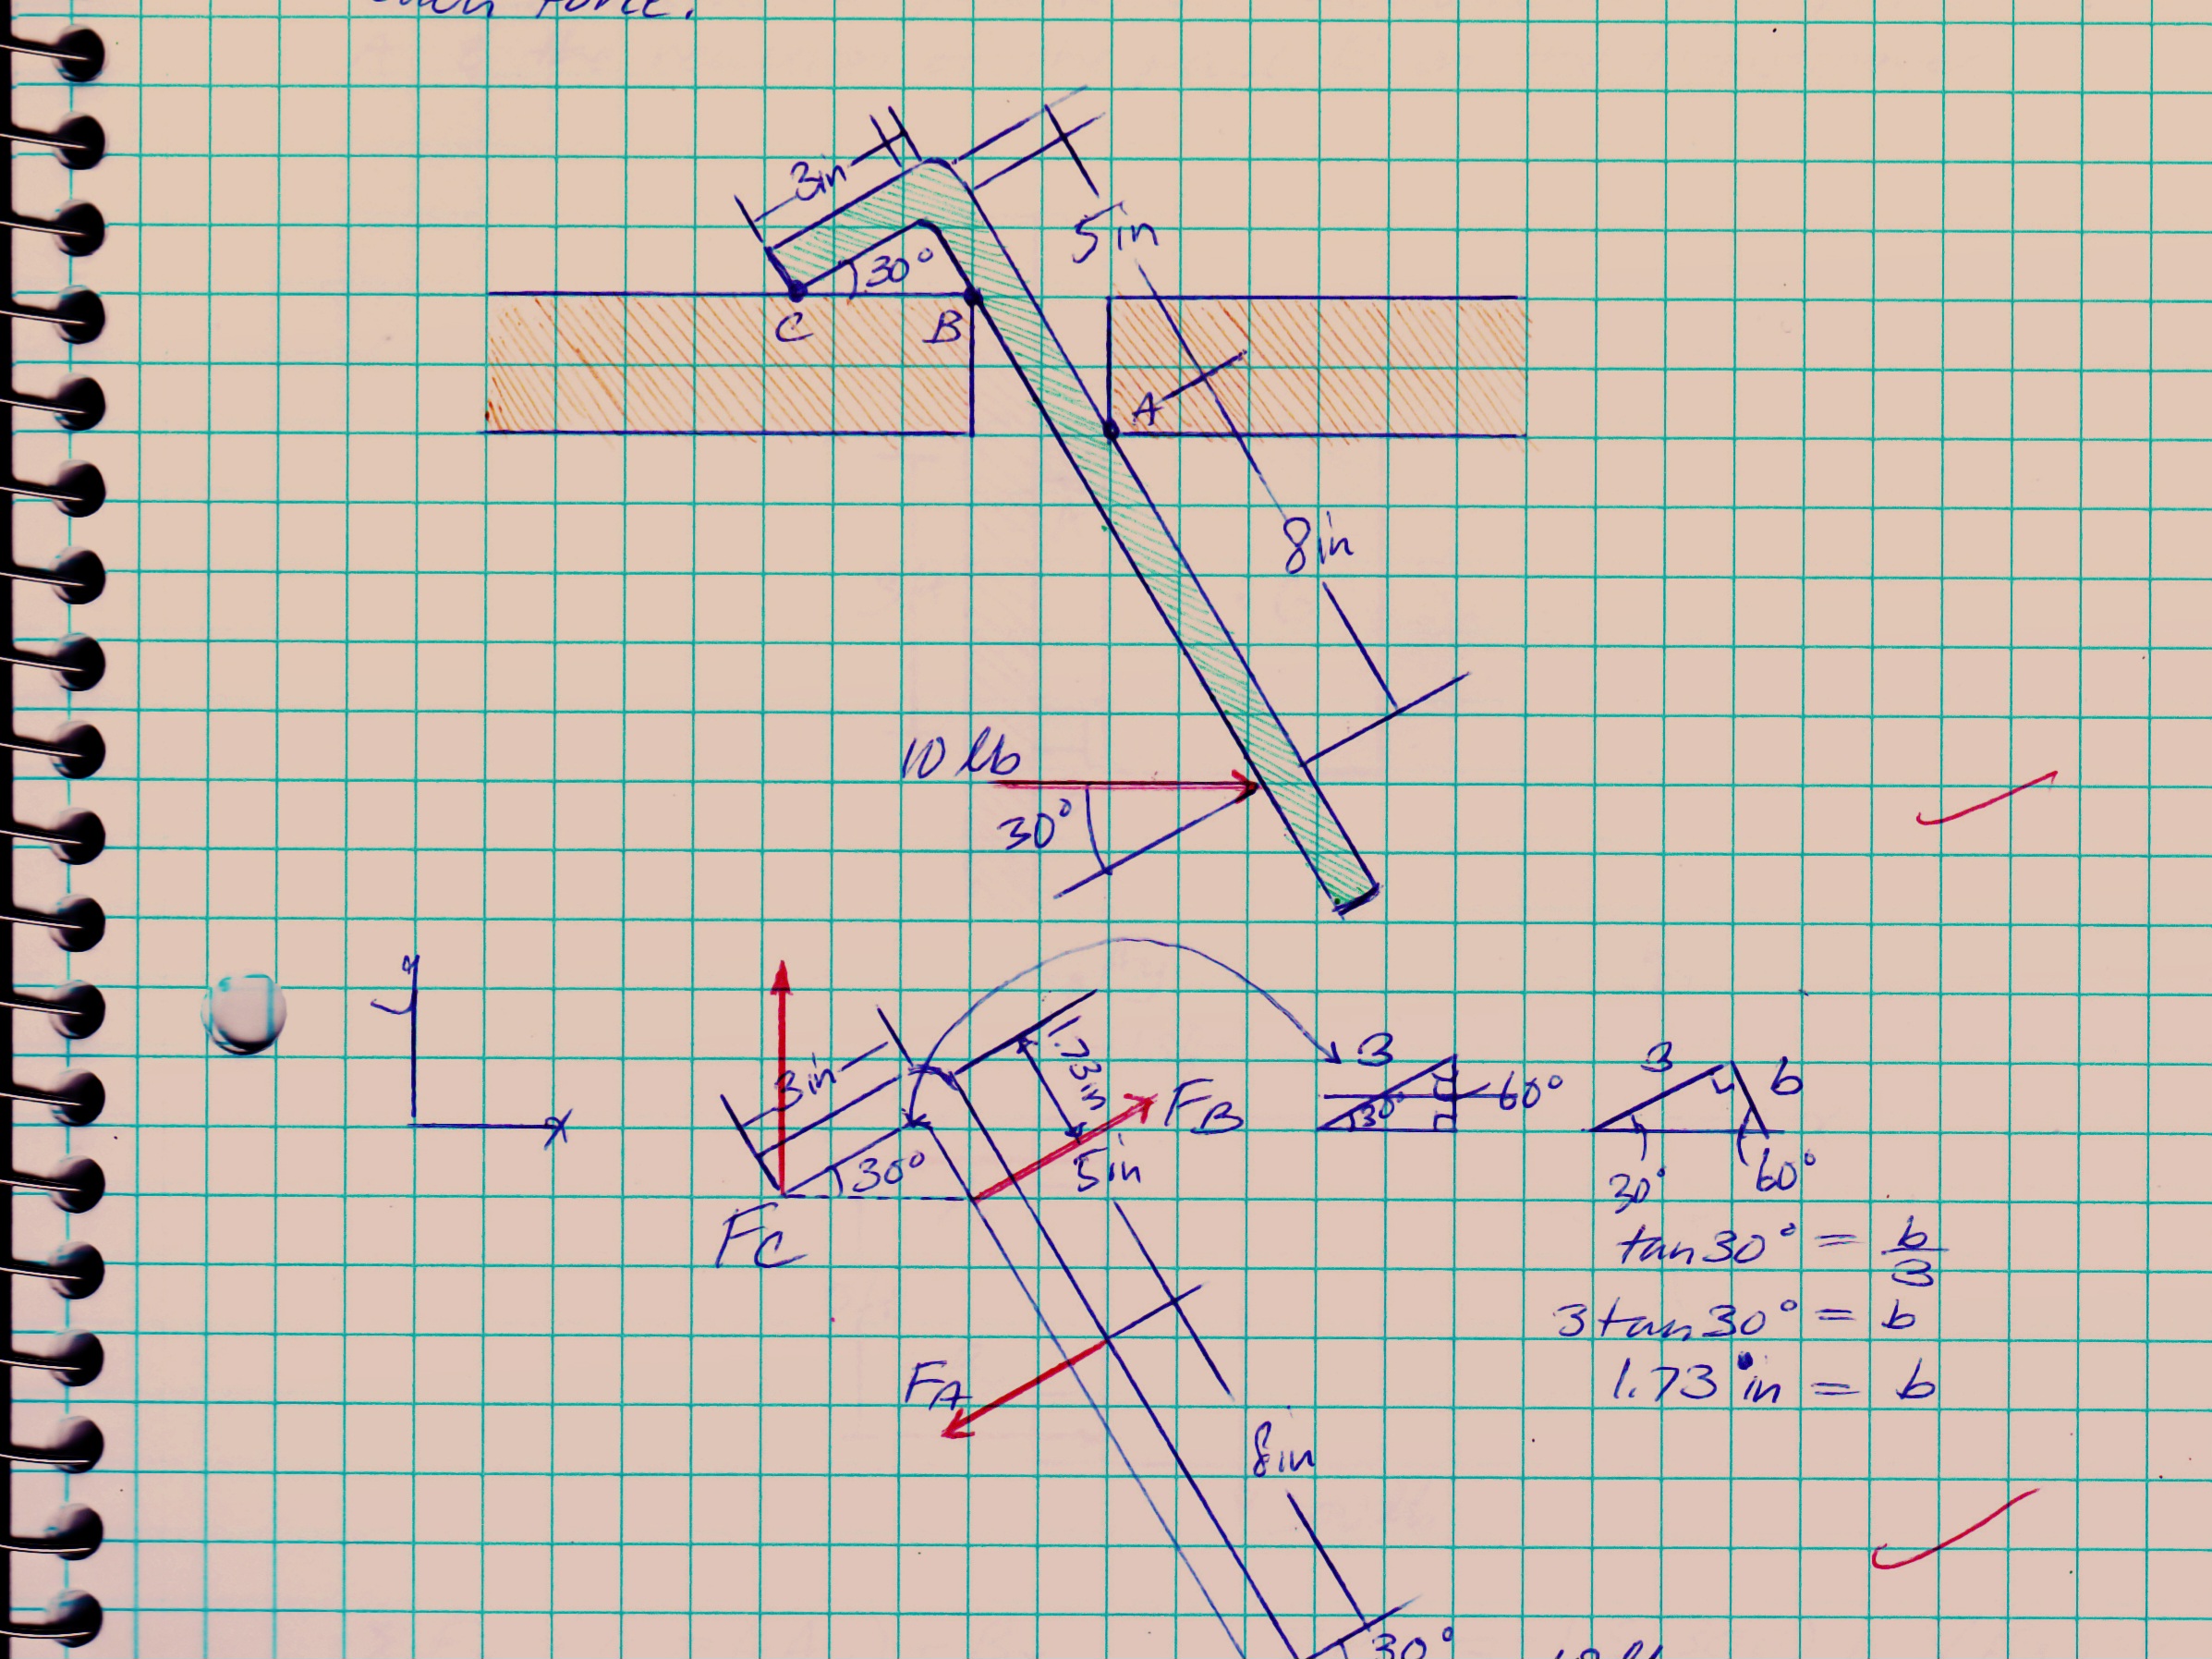 each force.
3in
5in
30°
C
B
A
8in
10 lb
30°
y
x
3in
1.73in
FB
30°
5in
FC
FA
8in
30°
3
30°
60°
3
b
30°
60°
tan30° = b/3
3tan30° = b
1.73 in = b